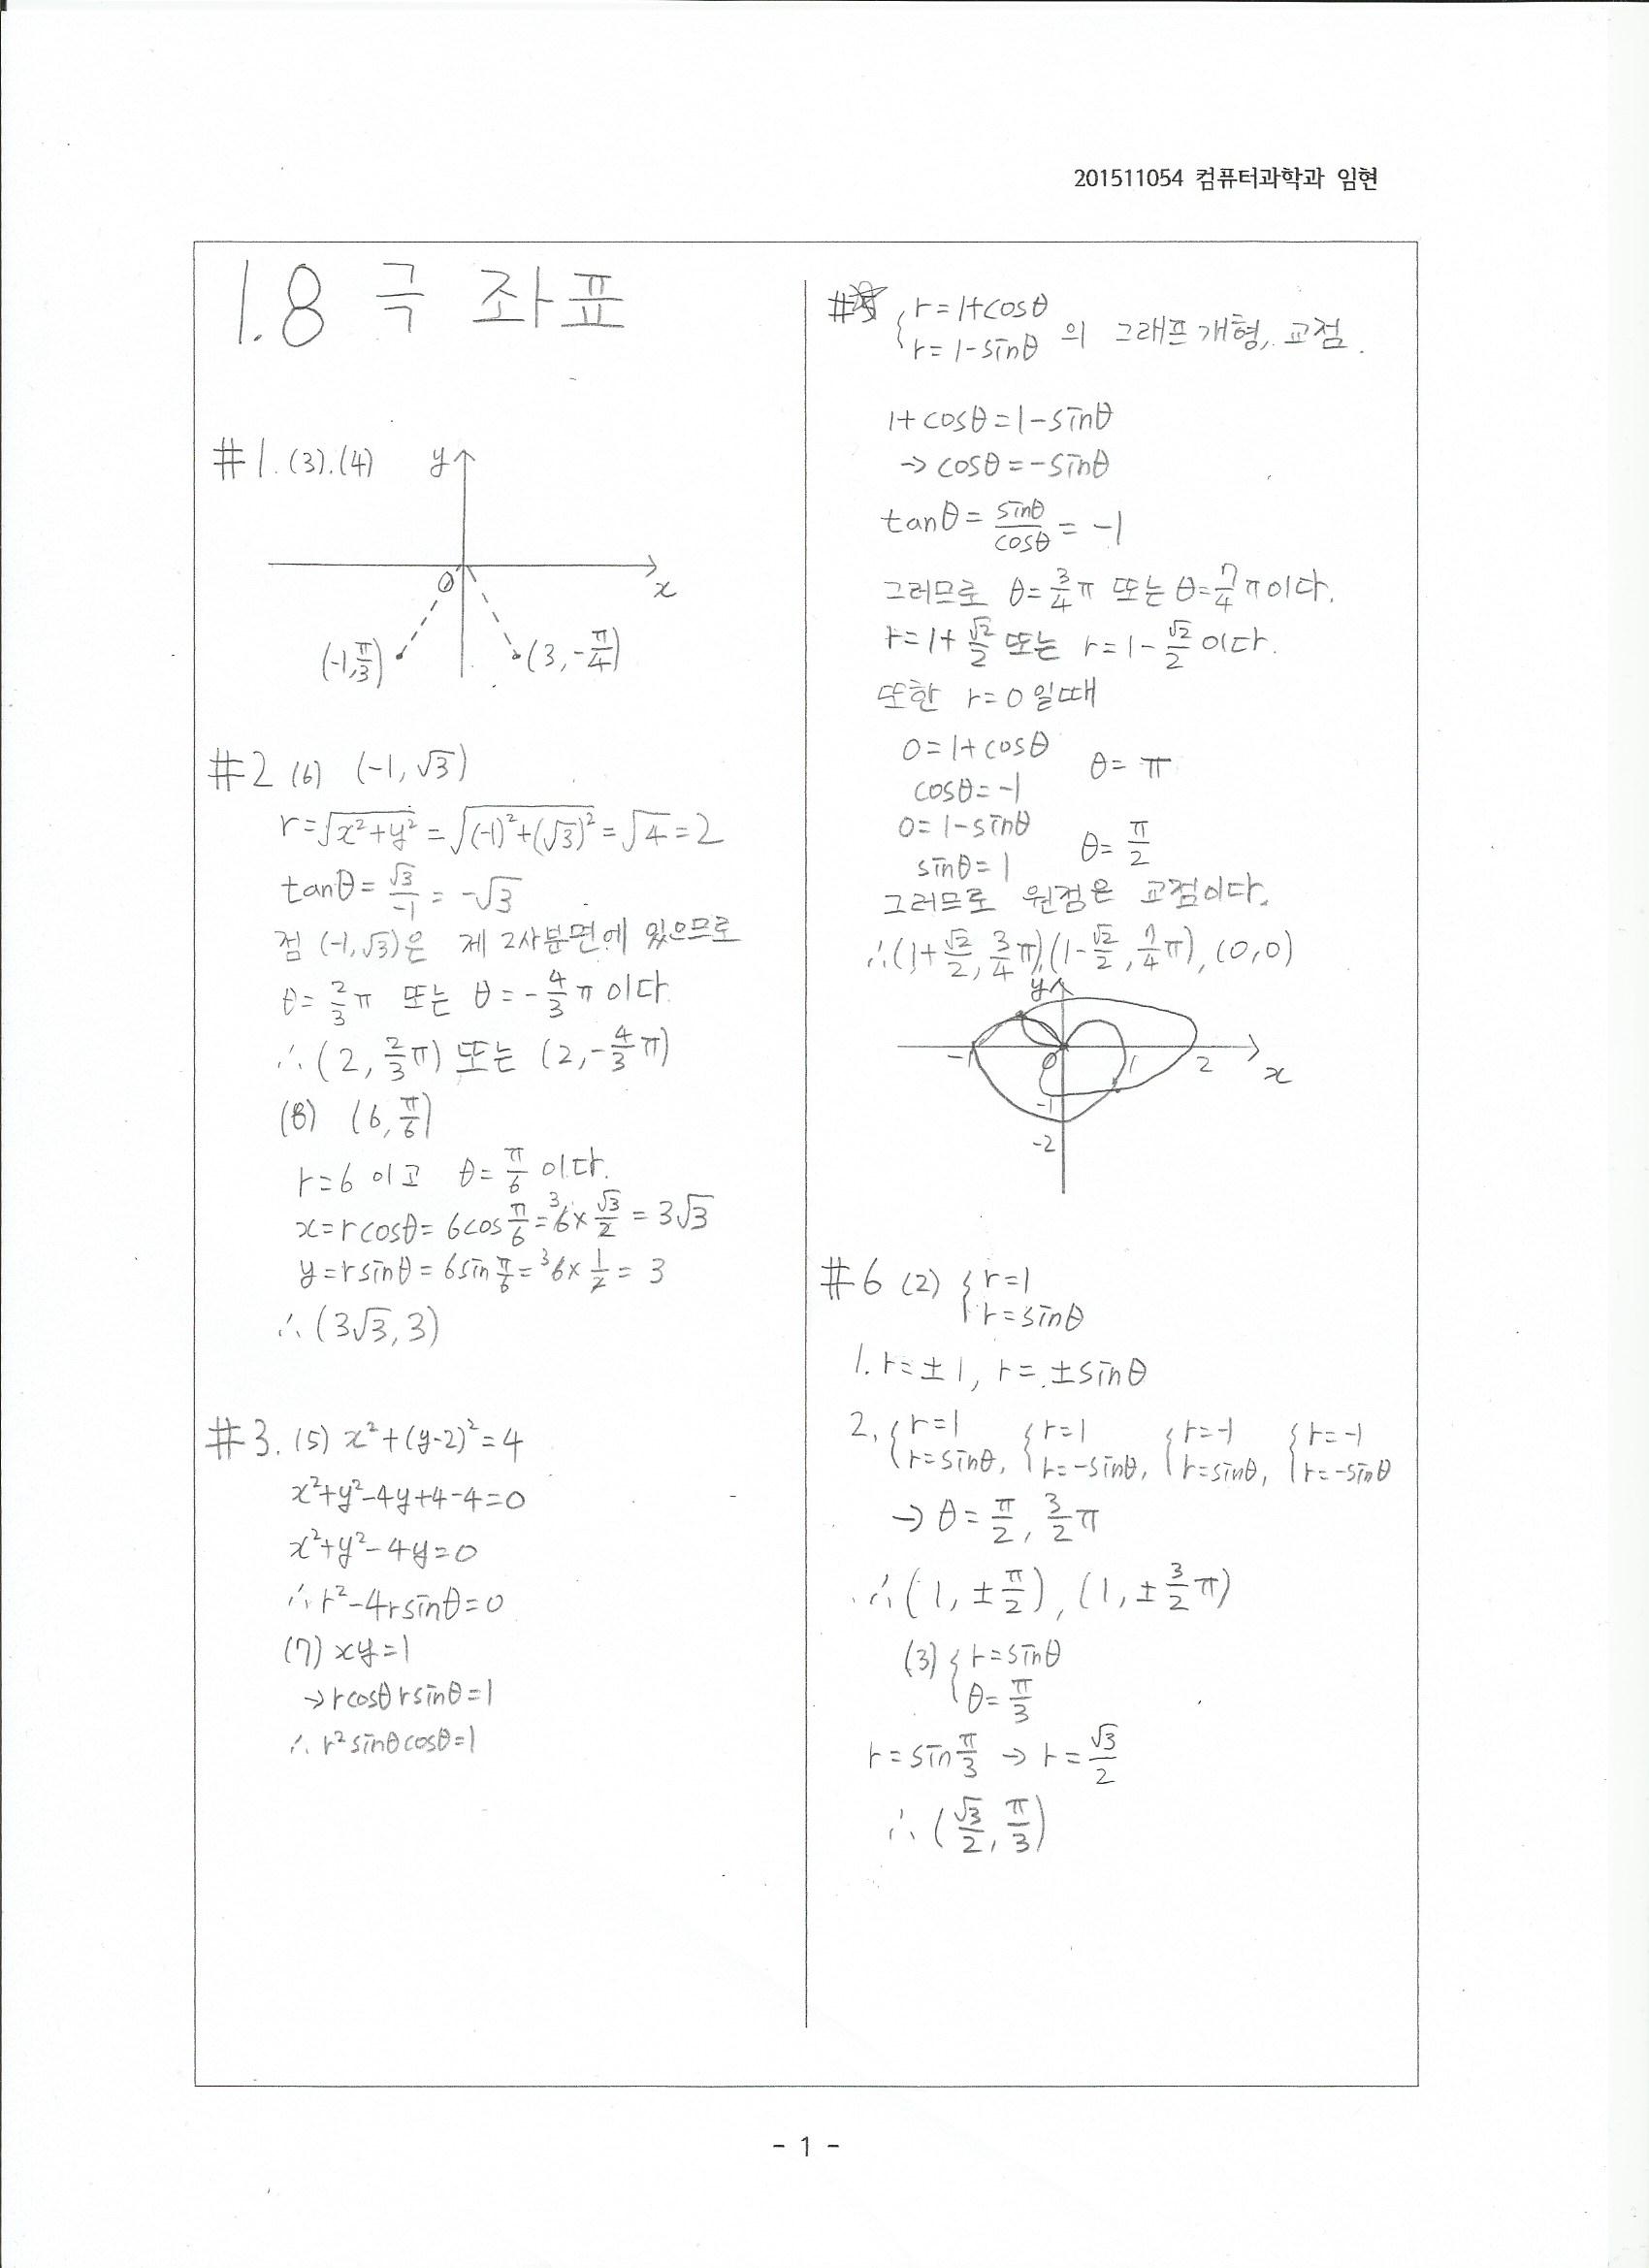 201511054 컴퓨터과학과 임현
1.8 극 좌표
#1. (3).(4)
y
x
O
(-1, π/3)
(3, -π/4)
#2 (6) (-1, √3)
r=√(x²+y²) = √((-1)²+(√3)²) = √4 = 2
tanθ = √3/-1 = -√3
점 (-1, √3)은 제 2사분면에 있으므로
θ= 2/3 π 또는 θ = -4/3 π 이다.
∴ (2, 2/3 π) 또는 (2, -4/3 π)
(8) (6, π/6)
r=6 이고 θ= π/6 이다.
x=rcosθ= 6cos π/6 = ³6× √3/2 = 3√3
y=rsinθ= 6sin π/6 = ³6× 1/2 = 3
∴ (3√3, 3)
#3. (5) x²+(y-2)²=4
x²+y²-4y+4-4=0
x²+y²-4y=0
∴ r²-4rsinθ=0
(7) xy=1
→ rcosθ rsinθ=1
∴ r²sinθcosθ=1
#5 { r=1+cosθ
r=1-sinθ 의 그래프 개형, 교점.
1+cosθ=1-sinθ
→ cosθ=-sinθ
tanθ= sinθ/cosθ = -1
그러므로 θ= 3/4 π 또는 θ= 7/4 π 이다.
r=1+ √2/2 또는 r=1- √2/2 이다.
또한 r=0 일때
0=1+cosθ
cosθ=-1 θ= π
0=1-sinθ
sinθ=1 θ= π/2
그러므로 원점은 교점이다.
∴ (1+ √2/2, 3/4 π), (1- √2/2, 7/4 π), (0,0)
y
-1 O 1 2 x
-1
-2
#6 (2) { r=1
r=sinθ
1. r=±1, r=±sinθ
2. { r=1 r=sinθ, { r=1 r=-sinθ, { r=-1 r=sinθ, { r=-1 r=-sinθ
→ θ= π/2, 3/2 π
∴ (1, ± π/2), (1, ± 3/2 π)
(3) { r=sinθ
θ= π/3
r=sin π/3 → r= √3/2
∴ (√3/2, π/3)
- 1 -